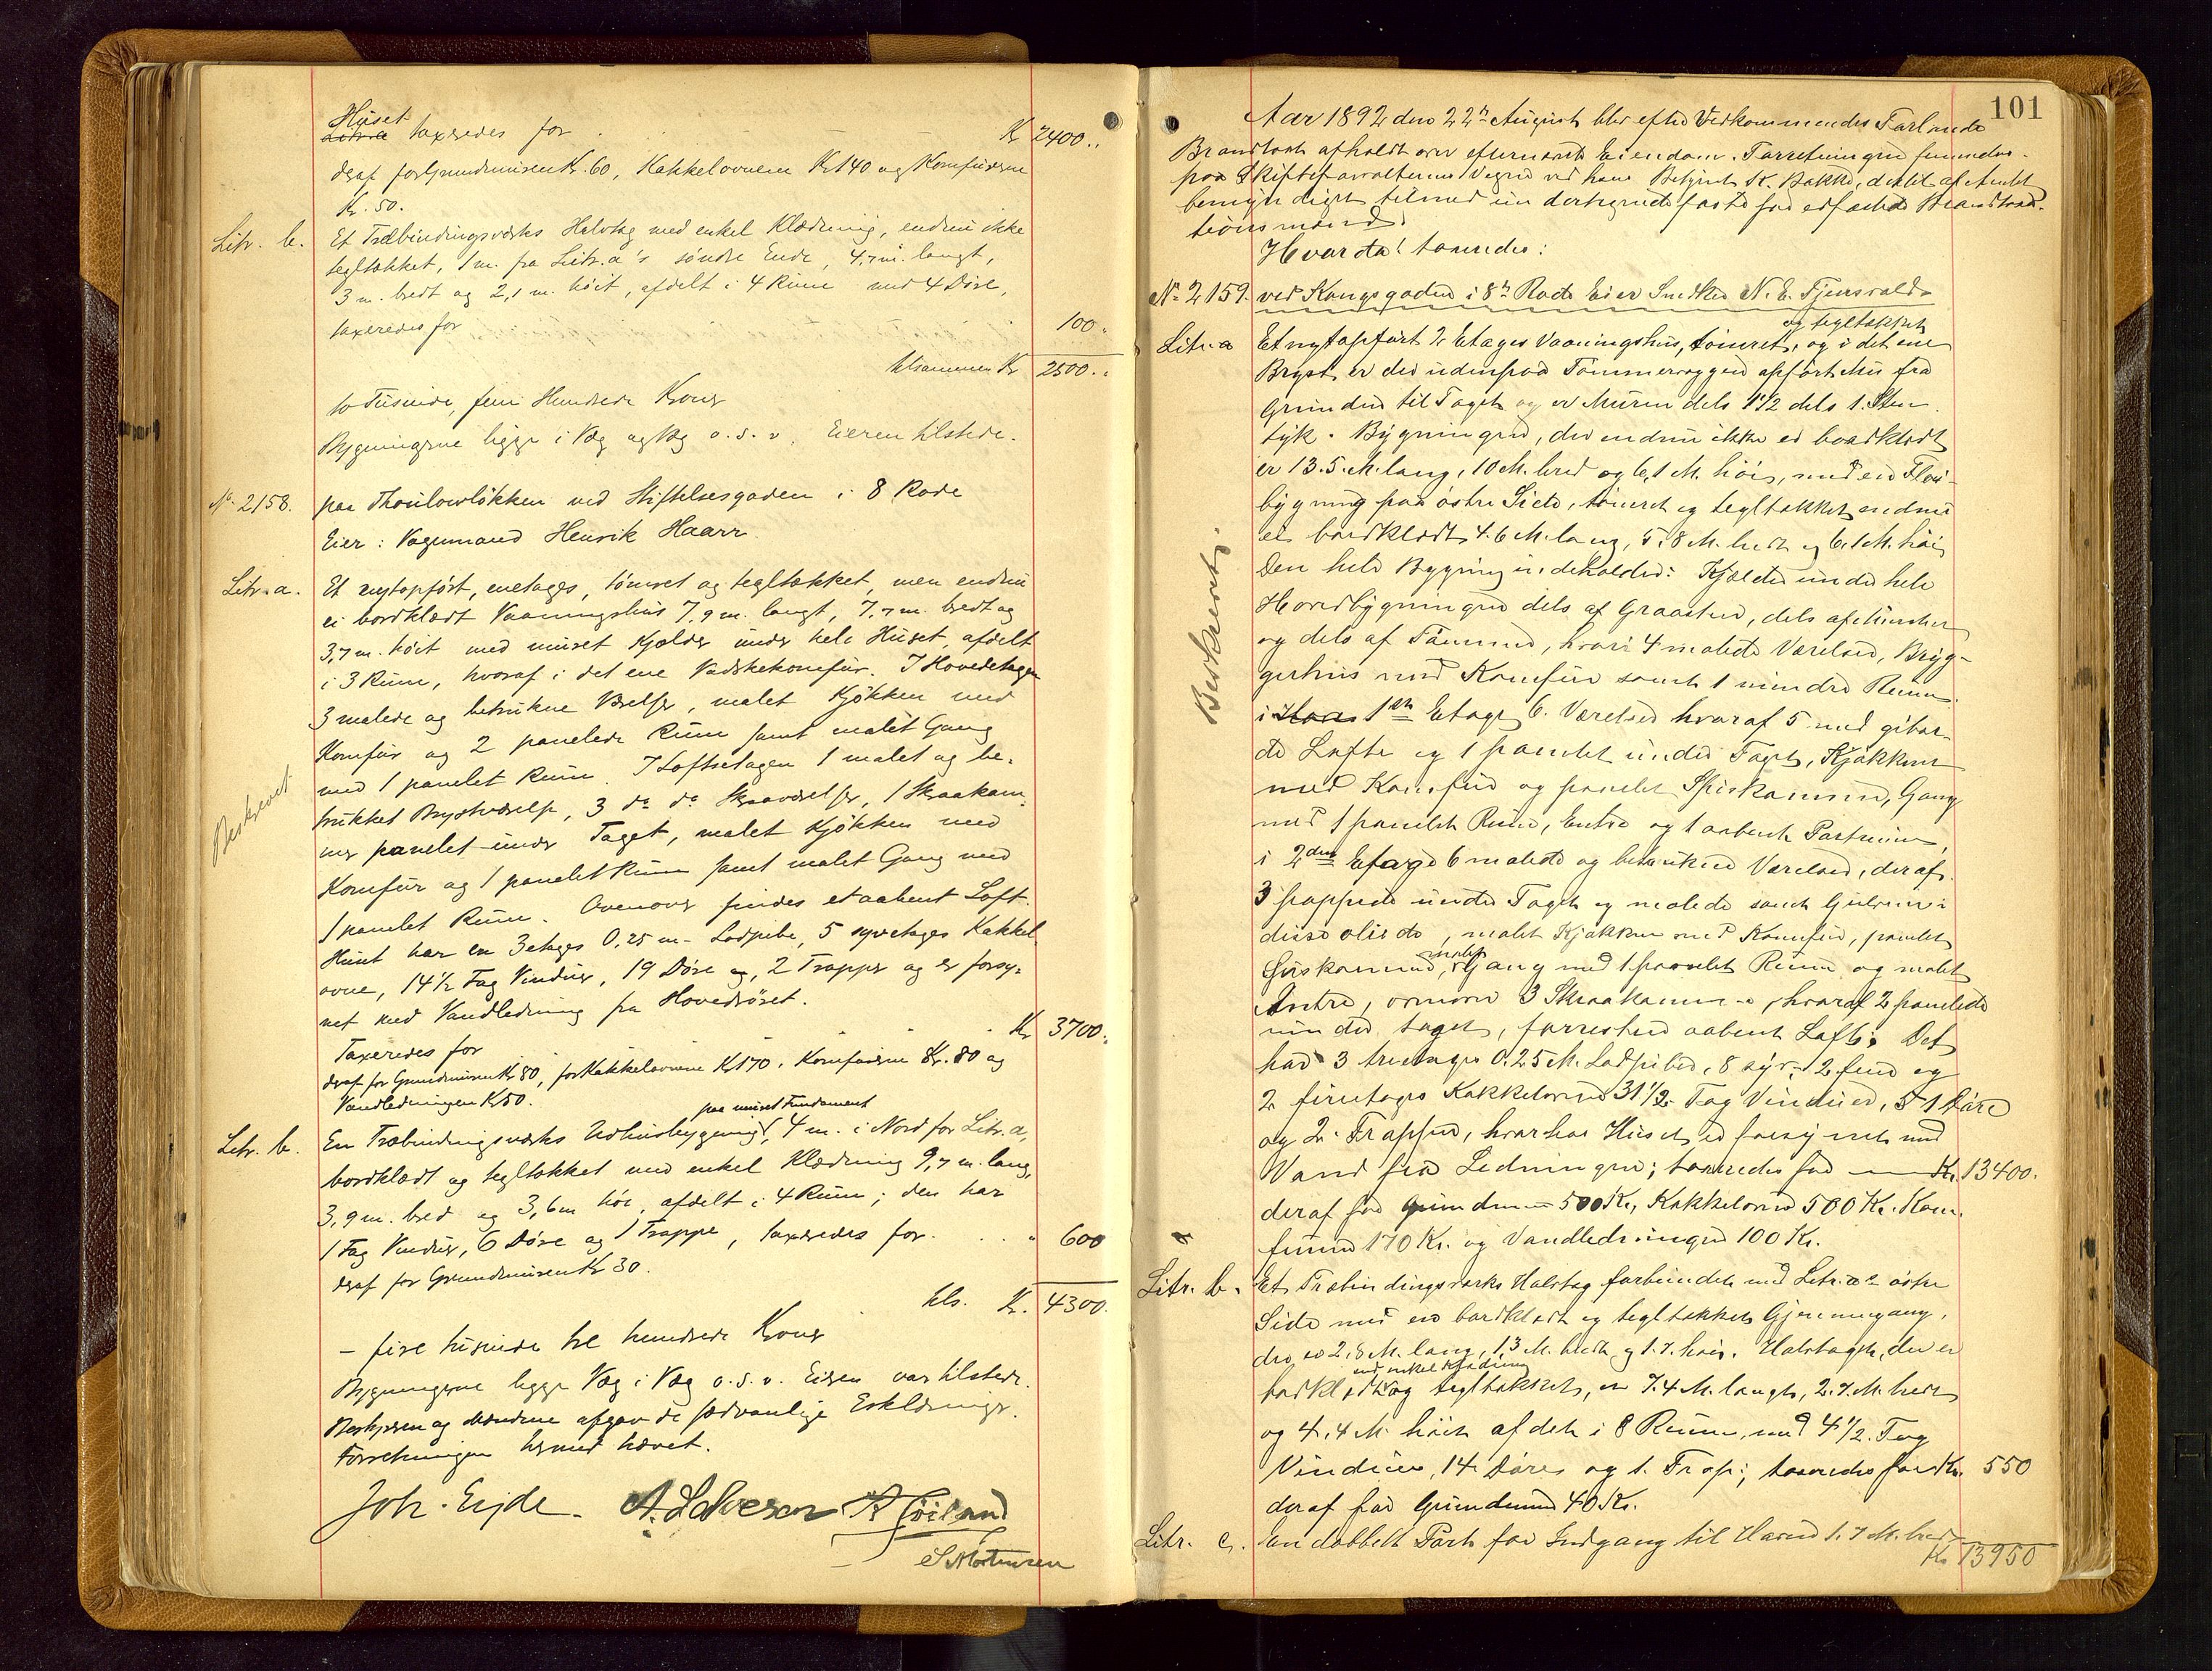 Huset
Litr. a taxeredes for Kr 2400..
deraf for Grundmuren Kr. 60, Kakkelovnene Kr 140 og Komfurerne
Kr. 50.
Litr. b. Et Træbindingsværks Halvtag med enkel Klædning, endnu ikke
tegltækket, 1 m. fra Litr. a's søndre Ende, 4,7 m. langt,
3 m. bredt og 2,1 m. høit, afdelt i 4 Rum med 4 Døre,
taxeredes for 100.
tilsammen Kr 2500..
to Tusinde, fem Hundrede Kroner
Bygningerne ligge i Væg og Væg o. s. v. Eieren tilstede.
No. 2158. paa Thoulowløkken ved Stiftelsesgaden i 8 Rode
Eier: Vognmand Henrik Haarr.
Litr. a. Et nytopført, enetages, tømret og tegltækket, men endnu
ei bordklædt Vaaningshus 7,9 m. langt, 7,7 m. bredt og
3,7 m. høit med muret Kjælder under hele Huset, afdelt
i 3 Rum, hvoraf i det ene Vadskekomfur. I Hovedetagen
3 malede og betrukne Værelser, malet Kjøkken med
Komfur og 2 panelede Rum samt malet Gang
med 1 panelet Rum. I Loftsetagen 1 malet og be-
trukket Brystværelse, 3 do do Skraaværelser, 1 Skraakam-
mer panelet under Taget, malet Kjøkken med
Komfur og 1 panelet Rum samt malet Gang med
1 panelet Rum. Ovenover findes et aabent Loft.
Huset har en 3 etages 0,25 m. Ladpibe, 5 syvetages Kakkel
ovne, 14½ Fag Vinduer, 19 Døre og 2 Trapper og er forsy-
net med Vandledning fra Hovedrøret.
Taxeredes for Kr 3700.
deraf for Grundmuren Kr 80, for Kakkelovnene Kr 170, Komfurerne Kr. 80 og
Vandledningen Kr 50.
paa muret Fundament
Litr. b. En Træbindingsværks Udhusbygning, 4 m. i Nord for Litr. a,
bordklædt og tegltækket med enkel Klædning 9,7 m. lang,
3,9 m. bred og 3,6 m høi, afdelt i 4 Rum; den har
1 Fag Vinduer, 6 Døre og 1 Trappe, taxeredes for 600
deraf for Grundmuren Kr 30.
tils. Kr. 4300.
- fire tusinde tre hundrede Kroner
Bygningerne ligge Væg i Væg o. s. v. Eieren var tilstede.
Bestyreren og Mændene afgav de sædvanlige Erklæringer.
Forretningen hermed hævet.
Joh. Eijde. A. Halvorsen A Høiland
S Mortensen
Beskrevet
101
Aar 1892 den 22de August blev efter Vedkommendes Forlangende
Brandtaxt afholdt over efternævnte Eiendom. Forretningen fremmedes
paa Skifteforvalterens Vegne ved hans Betjent K. Bakke, dertil af Amtet
bemyndiget tilmed undertegnede faste for edfæstede Brandtaxa-
tionsmænd.
Hvorda! taxeredes:
No 2159. ved Kongsgaden i 8de Rode Eier Snedker N. E. Tjensvold.
og tegltækket
Litr. a Et nytopført 2 Etages Vaaningshus, tømret, og i det ene
Bryst er der udenpaa Tømmervæggen opført Mur fra
Grunden til Taget og er Muren dels 1½ dels 1. Sten
tyk. Bygningen, der endnu ikke er bordklædt
er 13.5. M. lang, 10 M. bred og 6,1 M. høi, med en Fløi-
bygning paa østre Side, tømret og tegltækket endnu
ei bordklædt, 4.6 M. lang, 5.8 M. bredt og 6.1 M. høi
Den hele Bygning indeholder: Kjælder under hele
Hovedbygningen dels af Graasten, dels af Mursten
og dels af Tømmer, hvori 4 malede Værelser, Bryg-
gerhus med Komfur samt 1 mindre Rum.
i 1ste Etage 6. Værelser hvoraf 5 med gibse-
de Lofte og 1 panelet under Taget, Kjøkken
med Komfur og panelet Spiskammer, Gang
med 1 panelet Rum, Entre og 1 aabent Portrum,
i 2den Etage 6 malede og betrukne Værelser, deraf
3 pappede under Taget og malede samt Gulvene i
disse oliede, malet Kjøkken med Komfur, panelet
malet
Spiskammer, Gang med 1 panelet Rum og malet
Entre, ovenover 3 Skraakammere, hvoraf 2 panelede
under taget, forresten aabent Loft. Det
har 3 treetages 0.25 M. Ladpiber, 8 syv-, 2 fem og
2 firetages Kakkelovne 31½ Fag Vinduer, 51 Døre
og 2. Trapper, hvorhos Huset er forsynet med
Vand fra Ledningen; taxeredes for Kr. 13400.
deraf for Grundmuren 500 Kr., Kakkelovne 500 Kr. Kom-
furene 170 Kr. og Vandledningen 100 Kr.
Litr. b. Et Træbindingsværks Halvtag forbundet med Litr. a's østre
Side med en bordklædt og tegltækket Gjennemgang,
der er 2,8 M. lang, 1,3 M. bredt og 1.7. høi. Halvtaget, der er
med enkel Klædning
bordklædt og tegltækket, er 7.4 M. langt, 2.7. M. bredt
og 4,4 M. høit afdelt i 8 Rum, med 4½. Fag
Vinduer, 14. Døre og 1. Trap; taxeredes for Kr. 550
deraf for Grundmur 40 Kr.
Litr. c. En dobbelt Port for Indgang til Haven 1.7 M. bred
Kr 13950
Beskrevet.